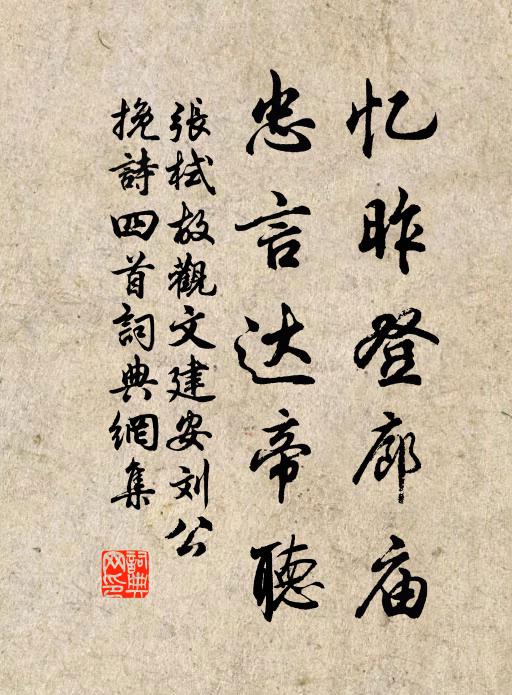 忆昨登廊庙
忠言达帝聽
張栻故觀文建安刘公
挽詩四首詞典網集
詞典網印